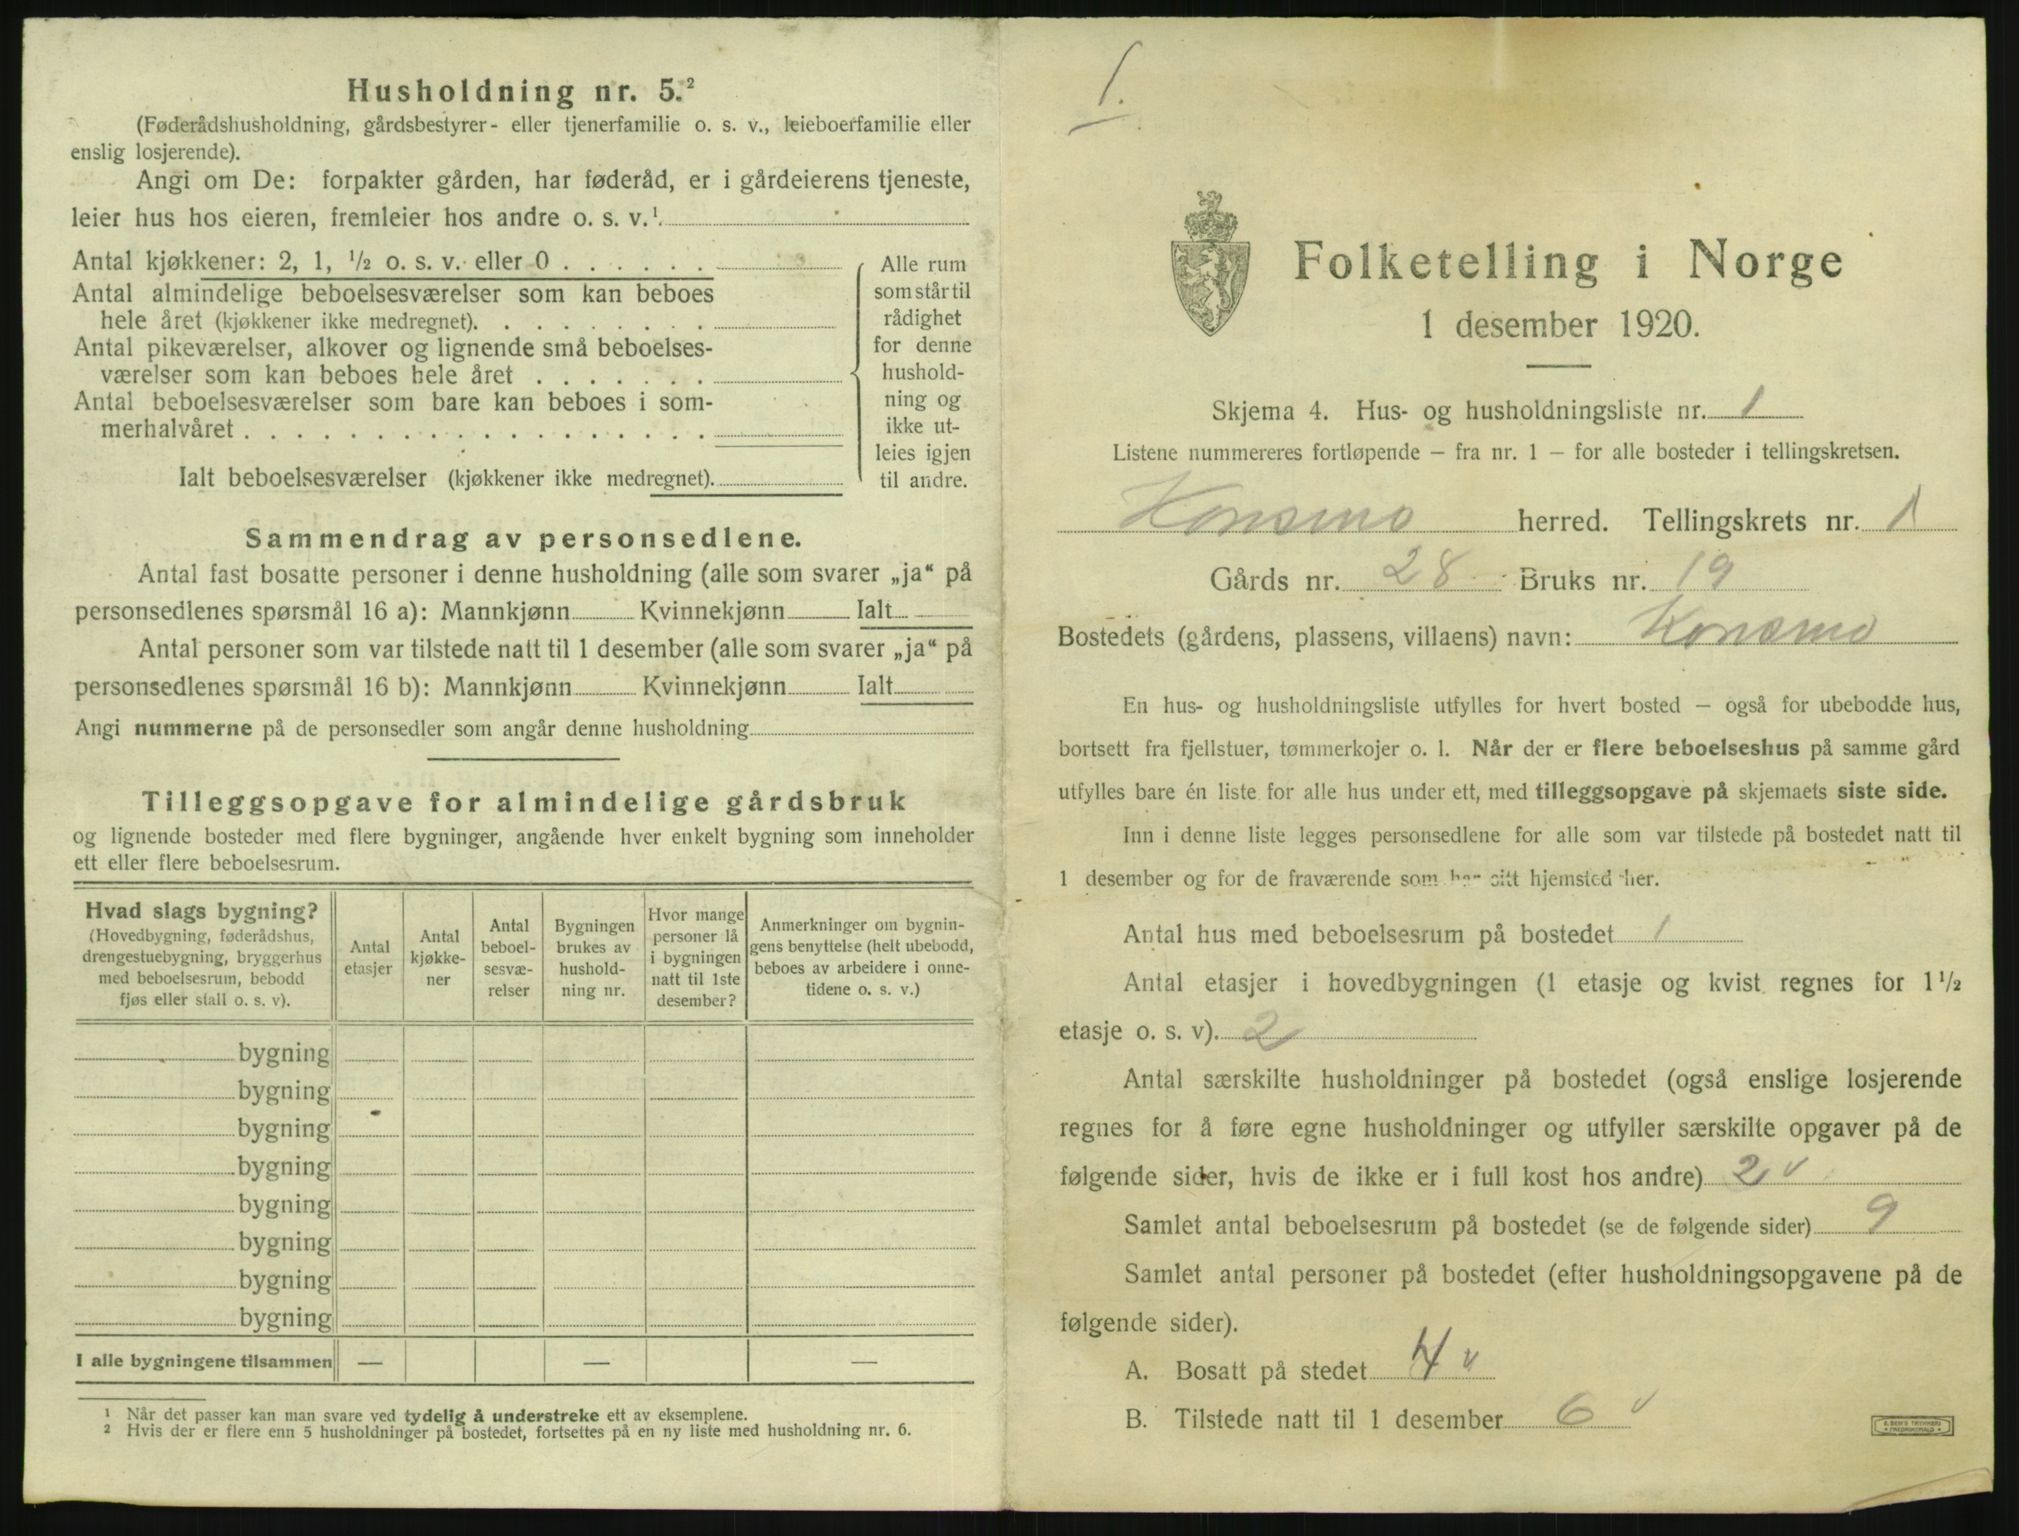 Husholdning nr. 5.²
(Føderådshusholdning, gårdsbestyrer- eller tjenerfamilie o. s. v., leieboerfamilie eller
enslig losjerende).
Angi om De: forpakter gården, har føderåd, er i gårdeierens tjeneste,
leier hus hos eieren, fremleier hos andre o. s. v.¹
Antal kjøkkener: 2, 1, ½ o. s. v. eller 0 . . . . . .
Antal almindelige beboelsesværelser som kan beboes
hele året (kjøkkener ikke medregnet). . . . . . . . .
Antal pikeværelser, alkover og lignende små beboelses-
værelser som kan beboes hele året . . . . . . .
Antal beboelsesværelser som bare kan beboes i som-
merhalvåret . . . . . . . . . . . . . . . . . .
Ialt beboelsesværelser (kjøkkener ikke medregnet).
Alle rum
som står til
rådighet
for denne
hushold-
ning og
ikke ut-
leies igjen
til andre.
Sammendrag av personsedlene.
Antal fast bosatte personer i denne husholdning (alle som svarer „ja“ på
personsedlenes spørsmål 16 a): Mannkjønn Kvinnekjønn Ialt
Antal personer som var tilstede natt til 1 desember (alle som svarer „ja“ på
personsedlenes spørsmål 16 b): Mannkjønn Kvinnekjønn Ialt
Angi nummerne på de personsedler som angår denne husholdning
Tilleggsopgave for almindelige gårdsbruk
og lignende bosteder med flere bygninger, angående hver enkelt bygning som inneholder
ett eller flere beboelsesrum.
Hvad slags bygning?
(Hovedbygning, føderådshus,
drengestuebygning, bryggerhus
med beboelsesrum, bebodd
fjøs eller stall o. s. v).
Antal
etasjer
Antal
kjøkke-
ner
Antal
beboel-
sesvæ-
relser
Bygningen
brukes av
hushold-
ning nr.
Hvor mange
personer lå
i bygningen
natt til 1ste
desember?
Anmerkninger om bygnin-
gens benyttelse (helt ubebodd,
beboes av arbeidere i onne-
tidene o. s. v.)
bygning
bygning
bygning
bygning
bygning
bygning
bygning
bygning
I alle bygningene tilsammen — — —
¹ Når det passer kan man svare ved tydelig å understreke ett av eksemplene.
² Hvis der er flere enn 5 husholdninger på bostedet, fortsettes på en ny liste med husholdning nr. 6.
1.
Folketelling i Norge
1 desember 1920.
Skjema 4. Hus- og husholdningsliste nr. 1
Listene nummereres fortløpende – fra nr. 1 – for alle bosteder i tellingskretsen.
Konsmo herred. Tellingskrets nr. 1
Gårds nr. 28 Bruks nr. 19
Bostedets (gårdens, plassens, villaens) navn: Konsmo
En hus- og husholdningsliste utfylles for hvert bosted – også for ubebodde hus,
bortsett fra fjellstuer, tømmerkojer o. l. Når der er flere beboelseshus på samme gård
utfylles bare én liste for alle hus under ett, med tilleggsopgave på skjemaets siste side.
Inn i denne liste legges personsedlene for alle som var tilstede på bostedet natt til
1 desember og for de fraværende som har sitt hjemsted her.
Antal hus med beboelsesrum på bostedet 1
Antal etasjer i hovedbygningen (1 etasje og kvist regnes for 1½
etasje o. s. v). 2
Antal særskilte husholdninger på bostedet (også enslige losjerende
regnes for å føre egne husholdninger og utfyller særskilte opgaver på de
følgende sider, hvis de ikke er i full kost hos andre) 2 v
Samlet antal beboelsesrum på bostedet (se de følgende sider) 9
Samlet antal personer på bostedet (efter husholdningsopgavene på de
følgende sider).
A. Bosatt på stedet 4 v
B. Tilstede natt til 1 desember 6 v